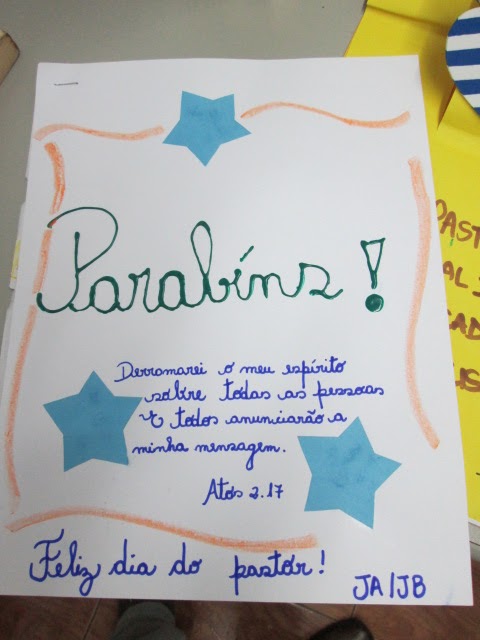 Parabéns!
Derramarei o meu espírito
sobre todas as pessoas
e todos anunciarão a
minha mensagem.
Atos 2.17
Feliz dia do pastor!
JA/JB
PAST
AL